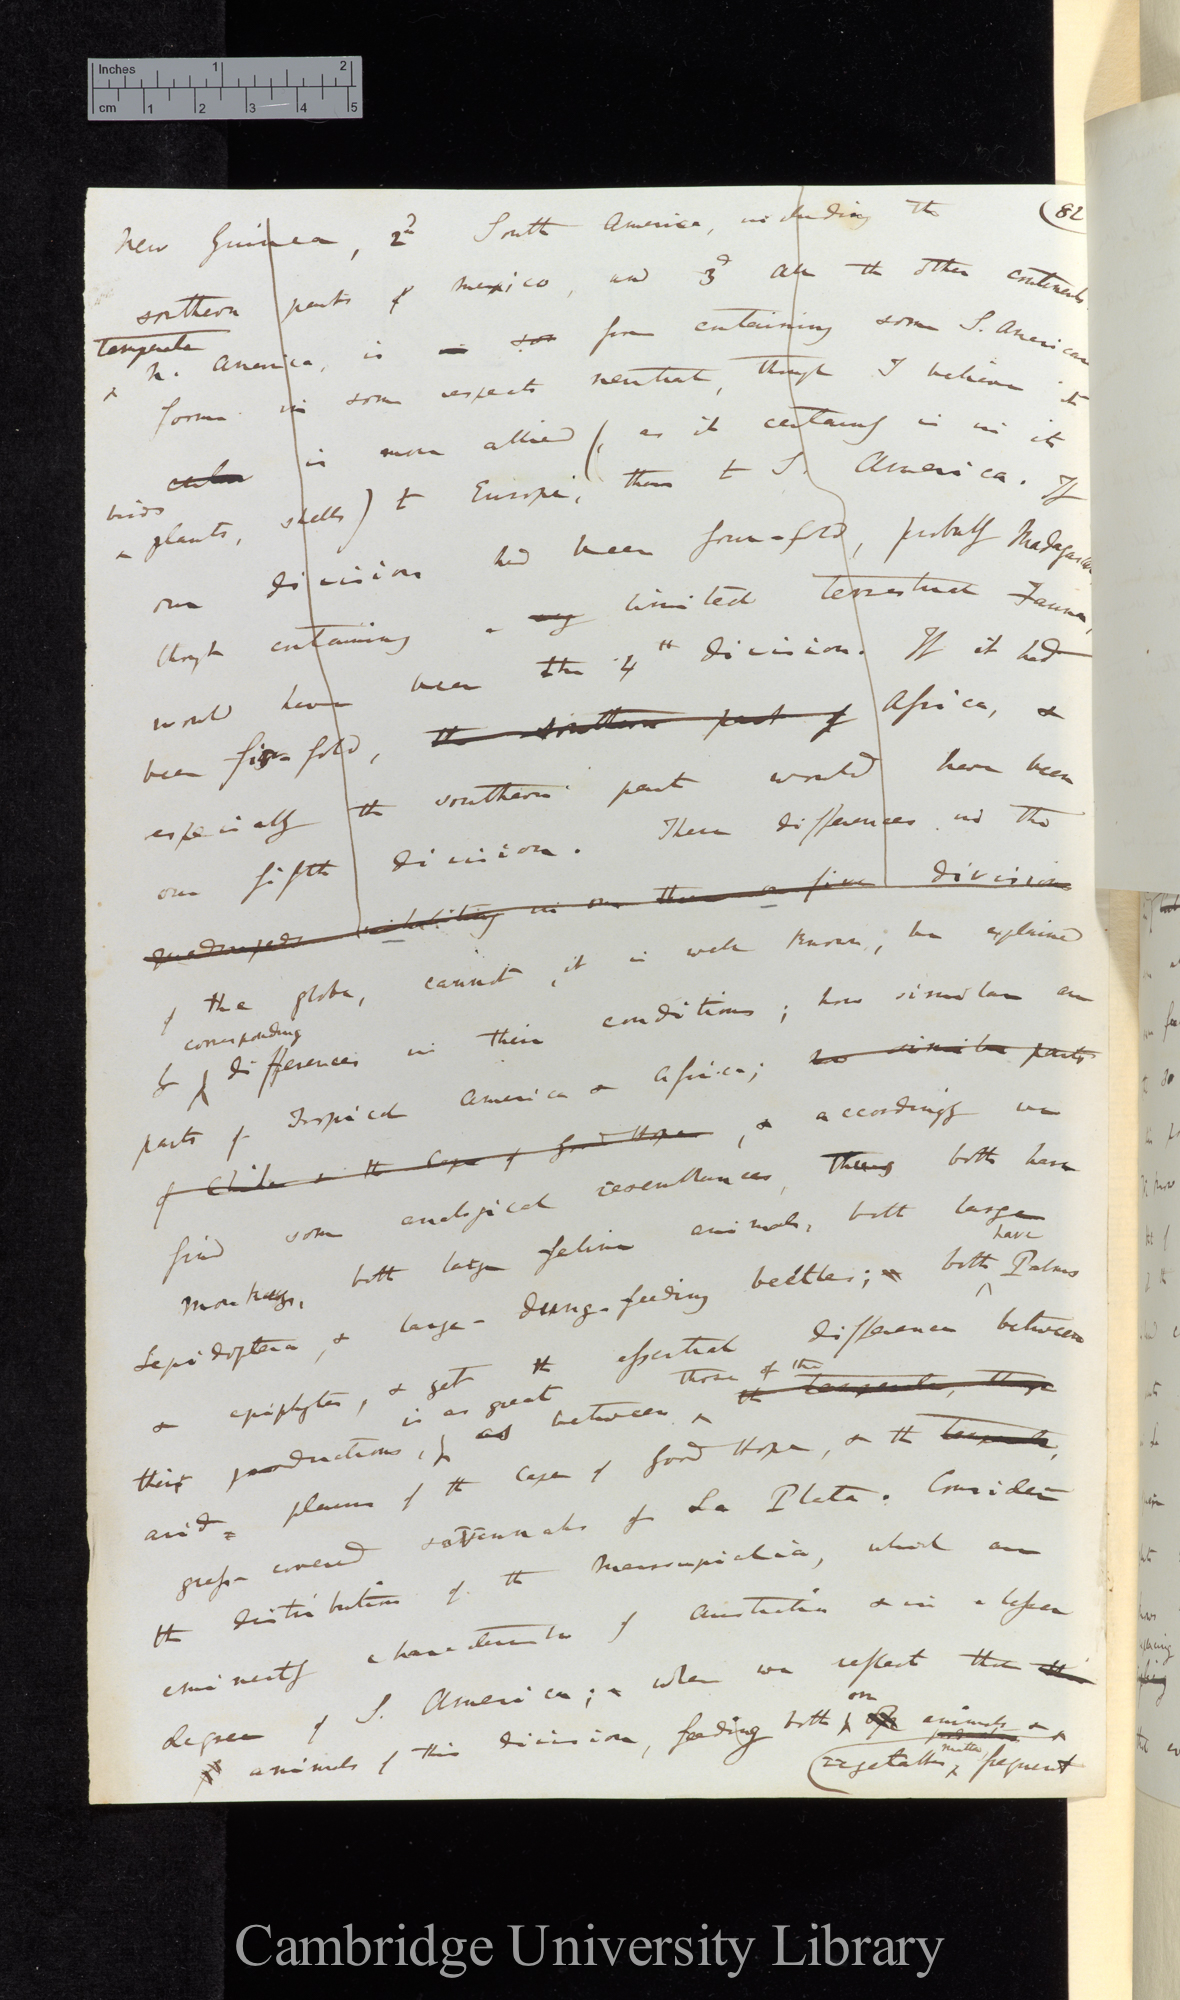 Inches 1 2
cm 1 2 3 4 5
(82
New Guinea, 2d South America, including the
southern parts of Mexico, and 3d all the other continents.
temperate
& N. America, is from containing some S. American
forms in some respects neutral, though I believe it
is more allied (, as it certainly is in its
birds
& plants, shells) to Europe, than to S. America. If
our division had been four-fold, probably Madagascar
though containing a very limited terrestrial Fauna,
would have been the 4th division. If it had
been five-fold, the southern part of Africa, &
especially the southern part would have been
our fifth division. These differences in the
quadrupeds inhabiting in our three or five divisions
of the globe, cannot, it is well known, be explained
corresponding
by differences in their conditions; how similar are
parts of Tropical America & Africa; how similar parts
of Chile & the Cape of Good Hope, & accordingly we
find some analogical resemblances, thus both have
monkeys, both large feline animals, both large
have
Lepidoptera, & large dung-feeding beetles; & both Palms
& epiphytes, & yet the essential difference between
is as great those of the
their productions, as between the temperate, those
arid plains of the Cape of Good Hope, & the temperate,
grass-covered savannahs of La Plata. Consider
the distribution of the Marsupialia, which are
eminently characteristic of Australia & in a lesser
degree of S. America; & when we reflect that this
on
animals of this division, feeding both of animals &
matter
(vegetable, frequent
Cambridge University Library